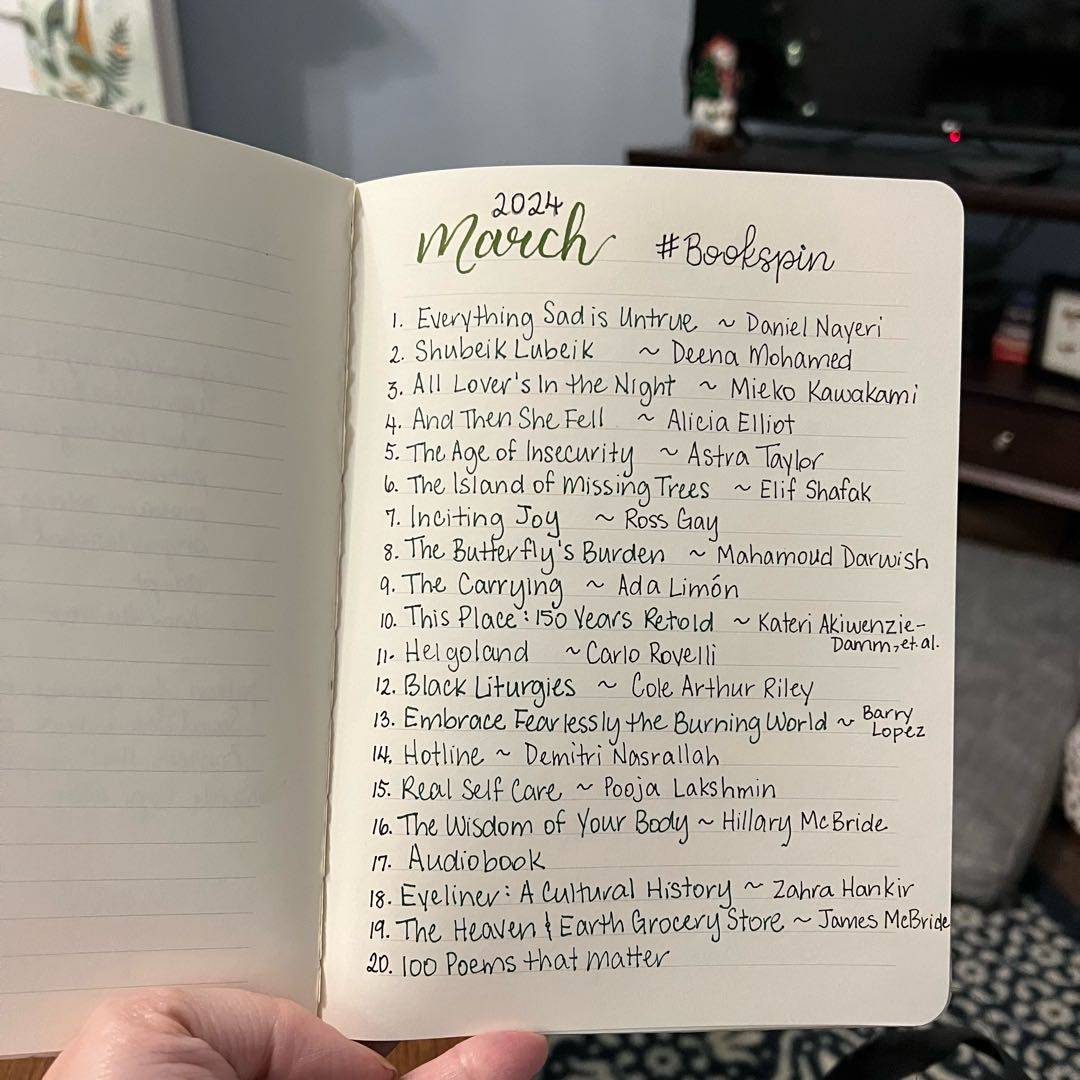 2024
March #Bookspin
1. Everything Sad is Untrue ~ Daniel Nayeri
2. Shubeik Lubeik ~ Deena Mohamed
3. All Lover's In the Night ~ Mieko Kawakami
4. And Then She Fell ~ Alicia Elliot
5. The Age of Insecurity ~ Astra Taylor
6. The Island of Missing Trees ~ Elif Shafak
7. Inciting Joy ~ Ross Gay
8. The Butterfly's Burden ~ Mahamoud Darwish
9. The Carrying ~ Ada Limón
10. This Place: 150 Years Retold ~ Kateri Akiwenzie-
Damm, et.al.
11. Helgoland ~ Carlo Rovelli
12. Black Liturgies ~ Cole Arthur Riley
13. Embrace Fearlessly the Burning World ~ Barry
Lopez
14. Hotline ~ Demitri Nasrallah
15. Real Self Care ~ Pooja Lakshmin
16. The Wisdom of Your Body ~ Hillary McBride
17. Audiobook
18. Eyeliner: A Cultural History ~ Zahra Hankir
19. The Heaven & Earth Grocery Store ~ James McBride
20. 100 Poems that matter